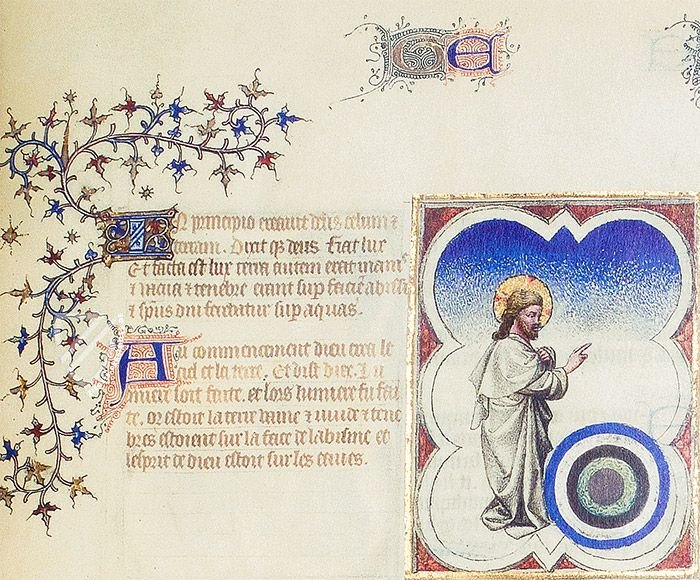 G E
IN principio creauit deus celum ⁊
terram. Dixit qꝫ deus fiat lux
Et facta est lux terra autem erat inanis
⁊ uacua ⁊ tenebre erant sup faciē abissi
⁊ spūs dni ferebatur sup aquas.
Au commencement dieu crea le
ciel et la terre. Et dist dieu. Lu
miere soit faite. et lors lumiere fu fai
te. or estoit la terre vaine ⁊ vuide ⁊ tene
bres estoient sur la face de labisme et
lesprit de dieu estoit sur les eaues.